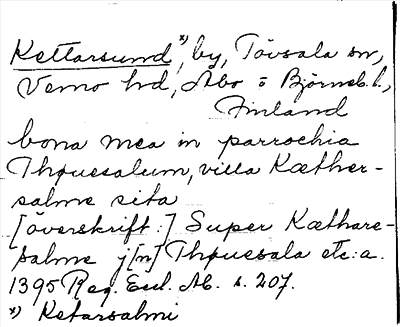 Kettarsund *), by, Tövsala sn,
Vemo hd, Åbo o Björneb. l.,
Finland
bona mea in parrochia
Thøuesalum, villa Kæther-
salme sita
[överskrift:] Super Kæthare-
salme j[n] Thøuesala etc: a.
1395 Reg. Eccl. Ab. s. 207.
*) Ketarsalmi